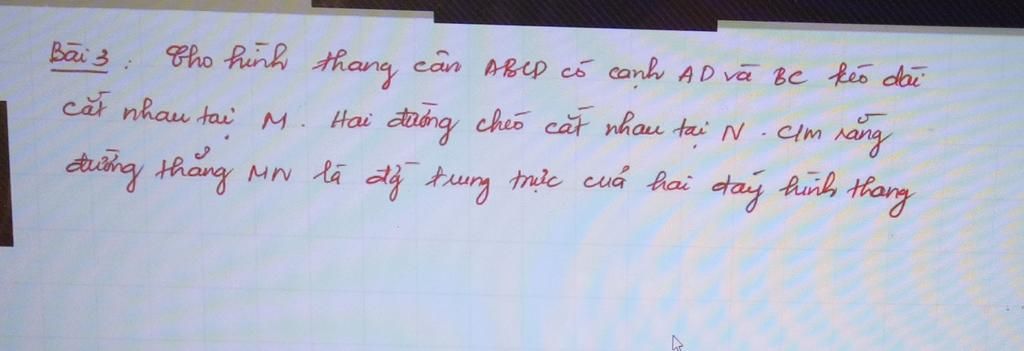 Bài 3 : Cho hình thang cân ABCD có cạnh AD và BC kéo dài
cắt nhau tại M. Hai đường chéo cắt nhau tại N. C/m rằng
đường thẳng MN là đg̀ trung trực cuả hai đáy hình thang